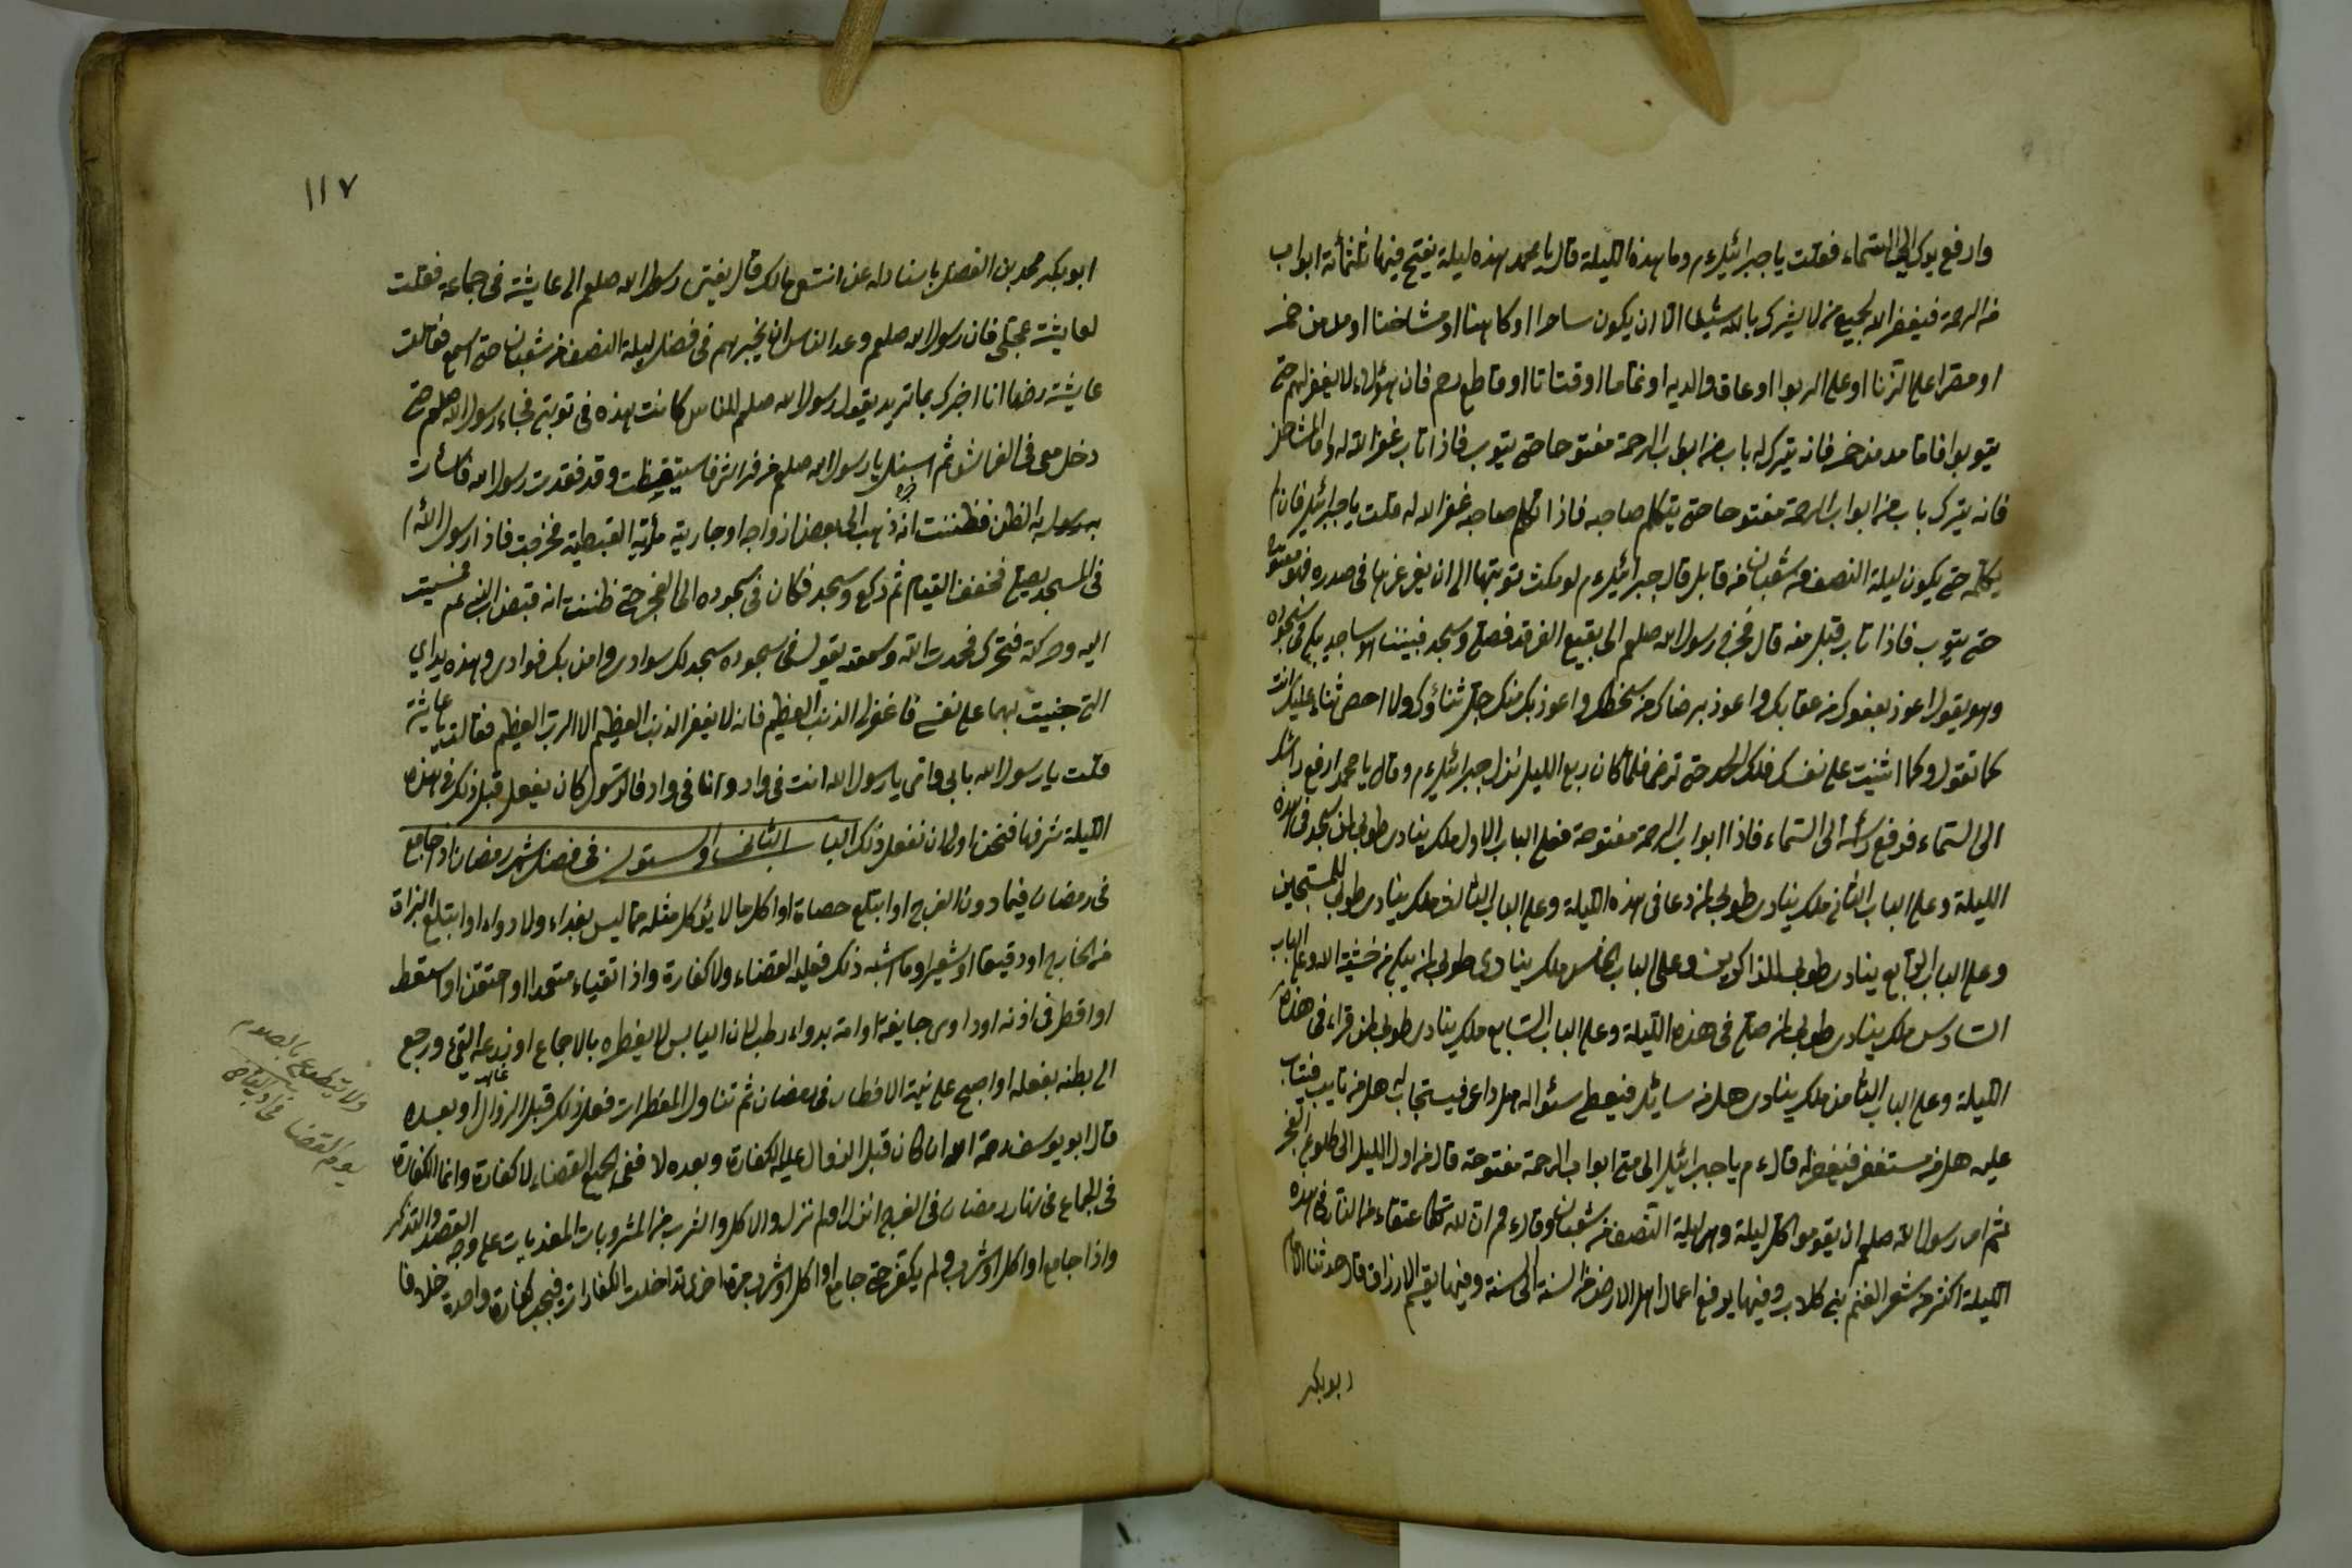 وارفع يدك الى السماء فقلت يا جبرائيل ءم وما هذه الليلة قال يا محمد هذه ليلة يفتح فيها ثلثمائة ابواب
من الرحمة فيغفر الله لجميع من لا يشرك بالله شيئا الا ان يكون ساحرا او كاهنا او مشاحنا او مدمن خمر
او مصرا على الزنا او على الربوا او عاق والديه او نماما او قتاتا او قاطع رحم فان هؤلاء لا يغفر لهم حتى
يتوبوا فاما مدمن خمر فانه يترك له باب من ابواب الرحمة مفتوحا حتى يتوب فاذا تاب غفر الله له واما المشاحن
فانه يترك باب من ابواب الرحمة مفتوحا حتى يتكلم صاحبه فاذا تكلم صاحبه غفر الله له قلت يا جبرائيل فان لم
يكلمه حتى يكون ليلة النصف من شعبان من قابل قال جبرائيل ءم لو مكث بتوبتها الى ان يغرغر بها فى صدره فهو مفتوح
حتى يتوب فاذا تاب قبل منه قال فخرج رسول الله صلعم الى بقيع الغرقد فصلى وسجد فبيننا هو ساجد يبكى فى سجوده
وهو يقول اعوذ بعفوك من عقابك واعوذ برضاك من سخطك واعوذ بك منك جل ثناؤك ولا احصى ثناء عليك انت
كما تقول وكما اثنيت على نفسك فلك الحمد حتى ترضى فلما كان ربع الليل نزل جبرائيل ءم وقال يا محمد ارفع رأسك
الى السماء فرفع رأسه الى السماء فاذا ابواب الرحمة مفتوحة فعلى الباب الاول ملك ينادى طوبى لمن سجد فى هذه
الليلة وعلى الباب الثانى ملك ينادى طوبى لمن دعا فى هذه الليلة وعلى الباب الثالث ملك ينادى طوبى للمستبحين
وعلى الباب الرابع ينادى طوبى للذاكرين وعلى الباب الخامس ملك ينادى طوبى لمن يبكى من خشية الله وعلى الباب
السادس ملك ينادى طوبى لمن صلى فى هذه الليلة وعلى الباب السابع ملك ينادى طوبى لمن قراء فى هذه
الليلة وعلى الباب الثامن ملك ينادى هل من سائل فيعطى سئواله هل داعى فيستجاب له هل من تايب فيتاب
عليه هل من مستغفر فيغفر له قال ءم يا جبرائيل الى متى ابواب الرحمة مفتوحة قال من اول الليل الى طلوع الفجر
ثم امر رسول الله صلعم ان يقوموا كل ليلة وهى ليلة النصف من شعبان وقال ءم ان لله تعالى عتقاء من النار فى هذه
الليلة اكثر من شعر الغنم بنى كلاب وفيها يرفع اعمال اهل الارض من السنة الى سنة وفيها يقسم الارزاق قال حدثنا الامام
ابو بكر
١١٧
ابو بكر محمد بن الفضل باسناد له عن انس مالك قال بعثنى رسول الله صلعم الى عايشة فى جماعه فقلت
لعايشة عجلى فان رسول الله صلعم وعد الناس ان يخبرهم فى فضل ليلة النصف من شعبان حتى اسمع فقالت
عايشة رضها انا اخبرك بما تريد يقول رسول الله صلعم للناس كانت هذه فى نوبتى فجاء رسول الله صلعم حتى
دخل معى فى الفراش ثم اسنل يا رسول الله صلعم من فراش فاستيقظت وقد فقدت رسول الله فاسأت
برسول به الظن فظننت انه ذهب الى بعض ازواجه او جاريته مأرية القبطية فخرجت فاذا رسول الله
فى المسجد يصلى فخفف القيام ثم ركع وسجد فكان فى سجوده الى الفجر حتى ظننت انه قبض النبى ءم فمسيت
اليه وحركته فتحرك فحمدت الله وسمعته يقول فى سجوده سجد لك سوادى وامن بك فوادى وهذه يداي
التى جنيت بهما على نفسى فاغفر لى الذنب العظيم فانه لا يغفر الذنب العظيم الا الرب العظيم فقالت يا عايشة
قلت يا رسول الله بابى وامى يا رسول الله انت فى واد وانا فى واد فالرسول كان يفعل قبل ذلك فى هذه
الليلة شرفها فنحن اولى ان نفعل ذلك الباب الثانى والستون فى فضل شهر رمضان اذا جامع
فى رمضان فيما دون الفرج او ابتلع حصاة او اكل ما لا يؤكل مثله مما ليس بغداء ولا دواء او ابتلع البزاق
من الخارج او دقيقا او شعيرا وما اشبه ذلك فعليه القضاء ولا كفارة واذا تقياء متعمدا او احتقن او استعط
او اقطر فى اذنه او داوى جايفة او امة بدواء رطب لان اليابس لا يفطره بالاجماع او نزعه القئ ورجع
الى بطنه بفعله او اصبح على نية الافطار فى رمضان ثم تناول المفطرات فعل ذلك قبل الزوال او بعده
قال ابو يوسف رحمة الله ان كان قبل الزوال عليه الكفارة وبعده لا ففى الجميع القضاء لا كفارة وانما الكفارة
فى الجماع فى نهار رمضان فى الفرج انزل او لم ينزل والاكل والشرب من المشروبات المغذيات على وجه القصد والتذكر
واذا جامع او اكل او شرب ولم يكفر حتى جامع او اكل او شرب مرة اخرى تداخلت الكفارات فيجب كفارة واحدة خلافا
ولا يتطوع بالصوم